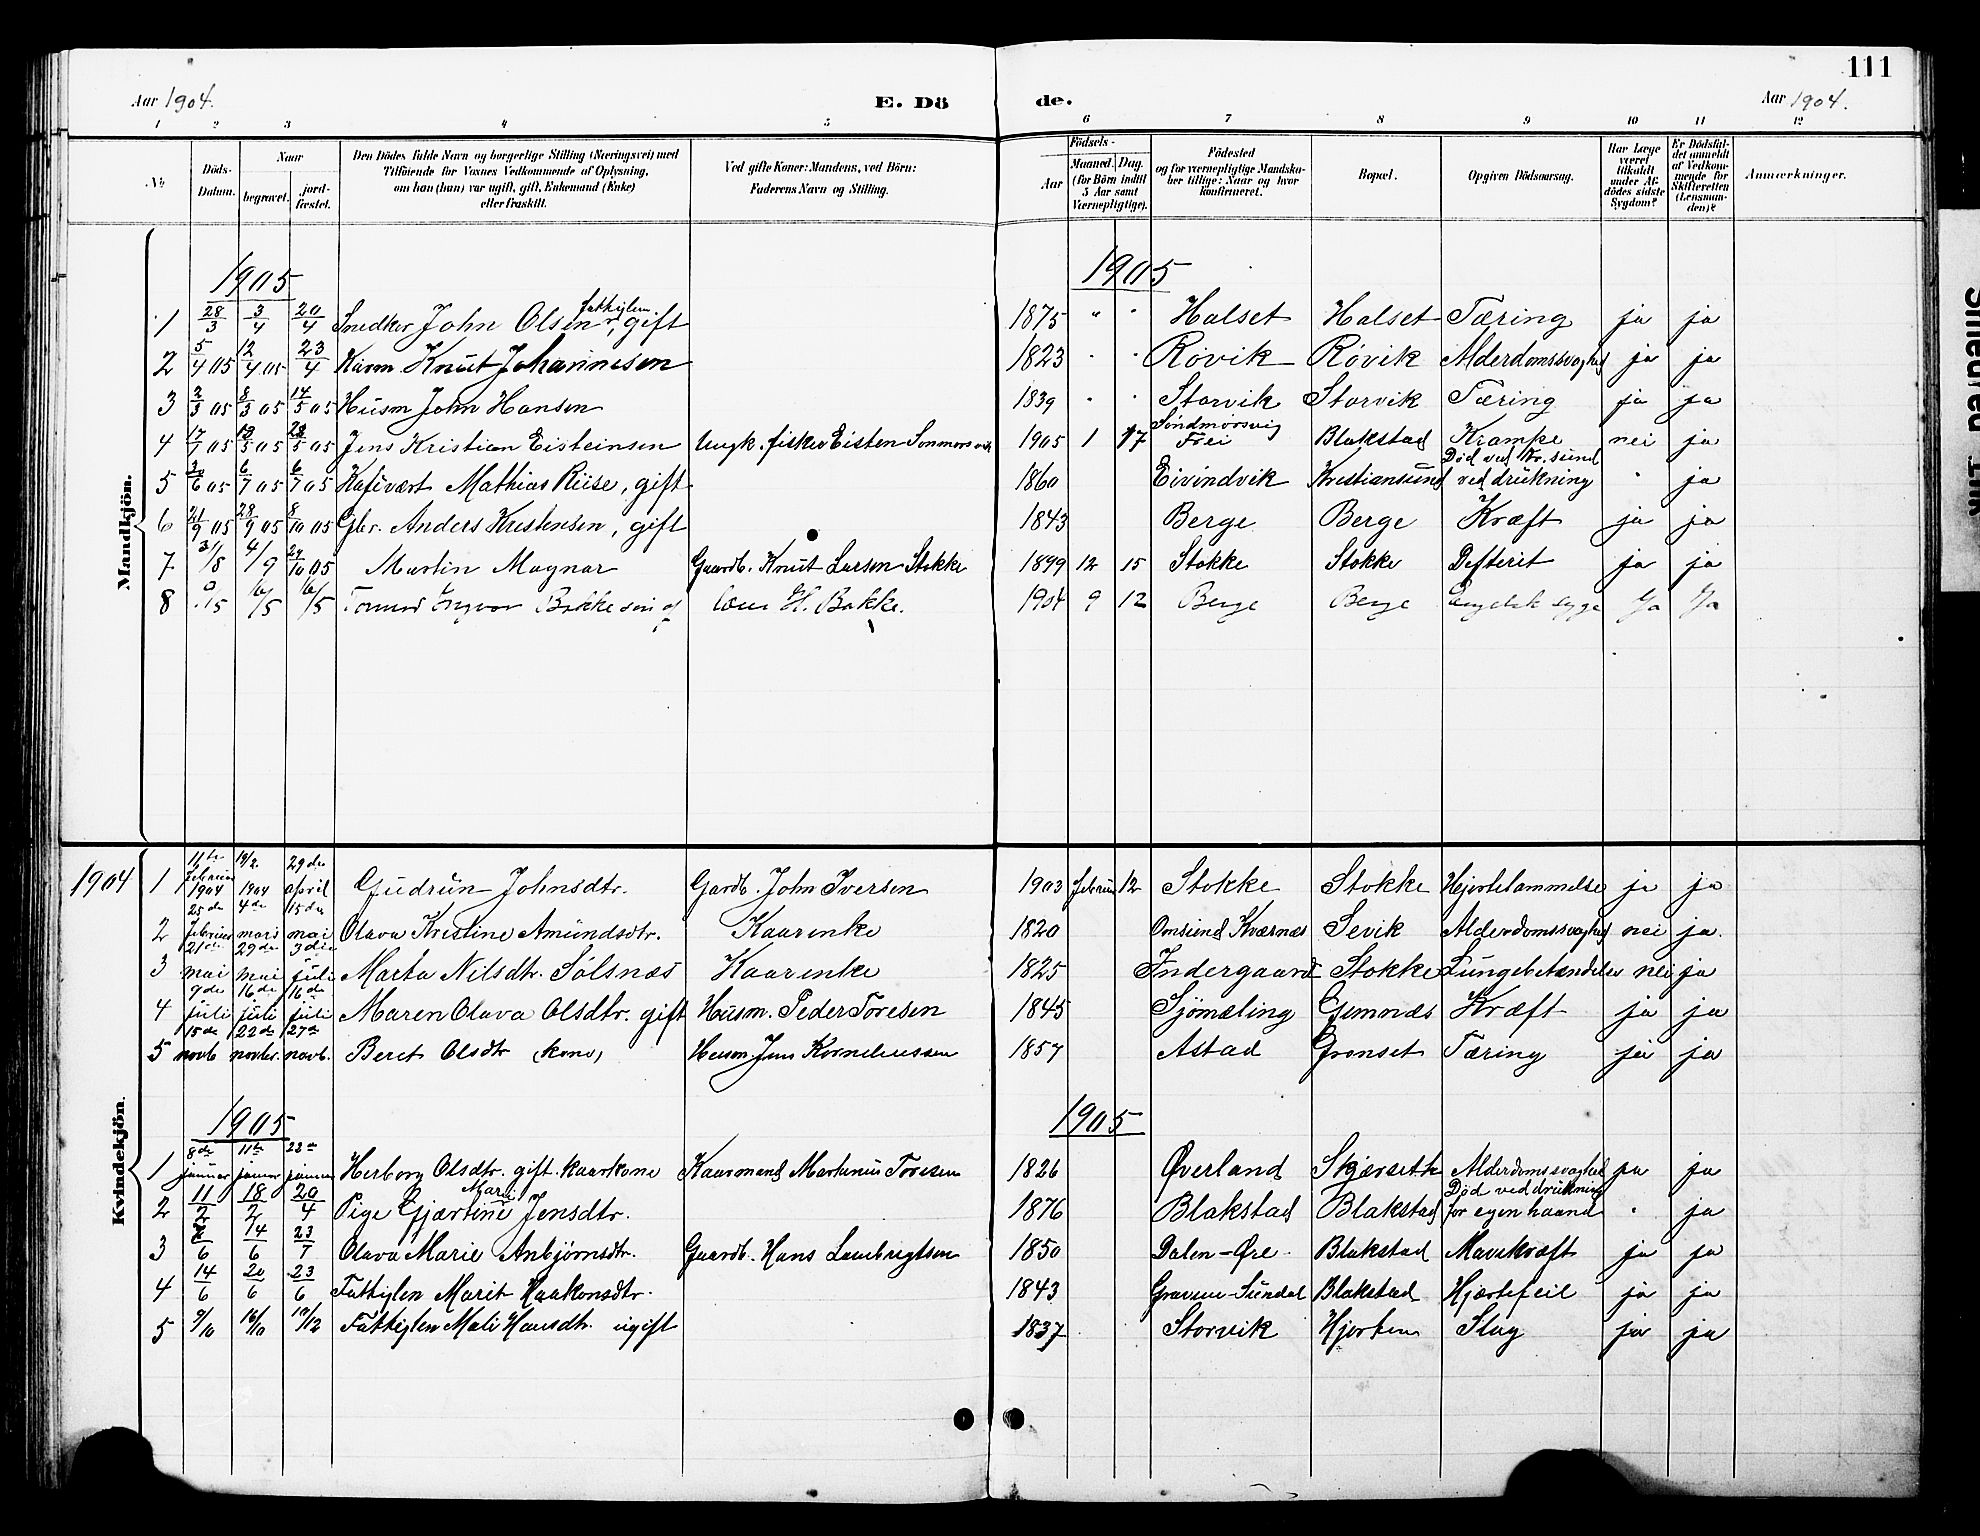 111
Aar 1904. E. Dö de. Aar 1904.
1 2 3 4 5 6 7 8 9 10 11 12
No. Döds-Datum. Naar begravet. jordfæstet. Den Dödes fulde Navn og borgerlige Stilling (Næringsvei) med Tilföiende for Voxnes Vedkommende af Oplysning, om han (hun) var ugift, gift, Enkemand (Enke) eller fraskilt. Ved gifte Koner: Mandens, ved Börn: Faderens Navn og Stilling. Födsels- Aar Maaned. Dag. (for Börn indtil 5 Aar samt Værnepligtige). Födested og for værnepligtige Mandskaber tillige: Naar og hvor konfirmeret. Bopæl. Opgiven Dödsaarsag. Har Læge været tilkaldt under Afdödes sidste Sygdom? Er Dödsfaldet anmeldt af Vedkommende for Skifteretten (Lensmanden)? Anmærkninger.
Mandkjön.
1905 1905
1 28/3 3/4 20/4 Snedker John Olsen, fattiglem. gift 1875 " " Halset Halset Tæring ja ja
2 5/4 05 12/4 05 23/4 Kårm Knut Johannesen 1823 " " Røvik Røvik Alderdomssvaghed ja ja
3 2/3 05 8/3 05 14/5 05 Husm John Hansen 1839 " " Storvik Storvik Tæring ja ja
4 05 05 05 Jens Kristian Eisteinsen Ungk. fisker Eisten 1905 1 17 Søndmørsvig Frei Blakstad Krampe nei ja
5 6 05 6/7 05 6/7 05 Kafévært Mathias Riise, gift 1860 Eivindvik Kristiansund Død ved Kr.sund ved drukning " ja
6 21/9 05 28/9 05 8/10 05 Gbr. Anders Kristensen, gift 1843 Berge Berge Kræft ja ja
7 31/8 4/9 29/10 05 Martin Magnar Gaardb. Knut Larsen Stokke 1899 12 15 Stokke Stokke Defterit ja ja
8 /5 16/5 16/5 Ingvar Bakke søn af H. Bakke. 1904 9 12 Berge Berge Engelsk syge Ja Ja
Kvindekjön.
1904 1 11te februar 1904 19/2 1904 29de april Gudrun Johnsdtr. Gardb. John Iversen 1903 februar 12 Stokke Stokke Hjertelammelse ja ja
2 25de februar 4de mars 15de mai Olava Kristine Amundsdtr. Kaarenke 1820 Omsund Kværnes Sevik Alderdomssvaghed nei ja.
3 21de mai 29de mai 3die juli Marta Nilsdtr. Sølsnæs Kaarenke 1825 Indergaard Stokke Lungebetændelse nei ja
4 9de juli 16de juli 16de juli Maren Olava Olsdtr. gift Husm. Peder Toresen 1845 Sjømæling Gimnæs Kræft ja ja
5 15de novb 22de novbr. 27de novb. Beret Olsdtr (kone) Husm. Jens Korneliussen 1857 Astad Grønset Tæring ja ja
1905 1905
1 8de januar 11te januar 22de januar Herborg Olsdtr. gift. kaarkone Kaarmand Martinus Toresen 1826 Øverland Skjærseth Alderdomssvaghed ja ja
2 11/2 18/2 20/4 Pige Gjærtine Marie Jensdtr. 1876 Blakstad Blakstad Død ved drukning for egen haand " ja
3 8/6 14/6 23/7 Olava Marie Anbjørnsdtr. Gaardb. Hans Lambregtsen 1850 Dalen-Øre Blakstad Mavekræft ja ja
4 14/6 20/6 23/6 Fattiglem Marit Haakonsdtr. 1843 Sundal Blakstad Hjærtefeil ja ja
5 9/10 16/10 10/12 Fattiglem Mali Hansdtr. ugift 1837 Storvik Slag ja ja